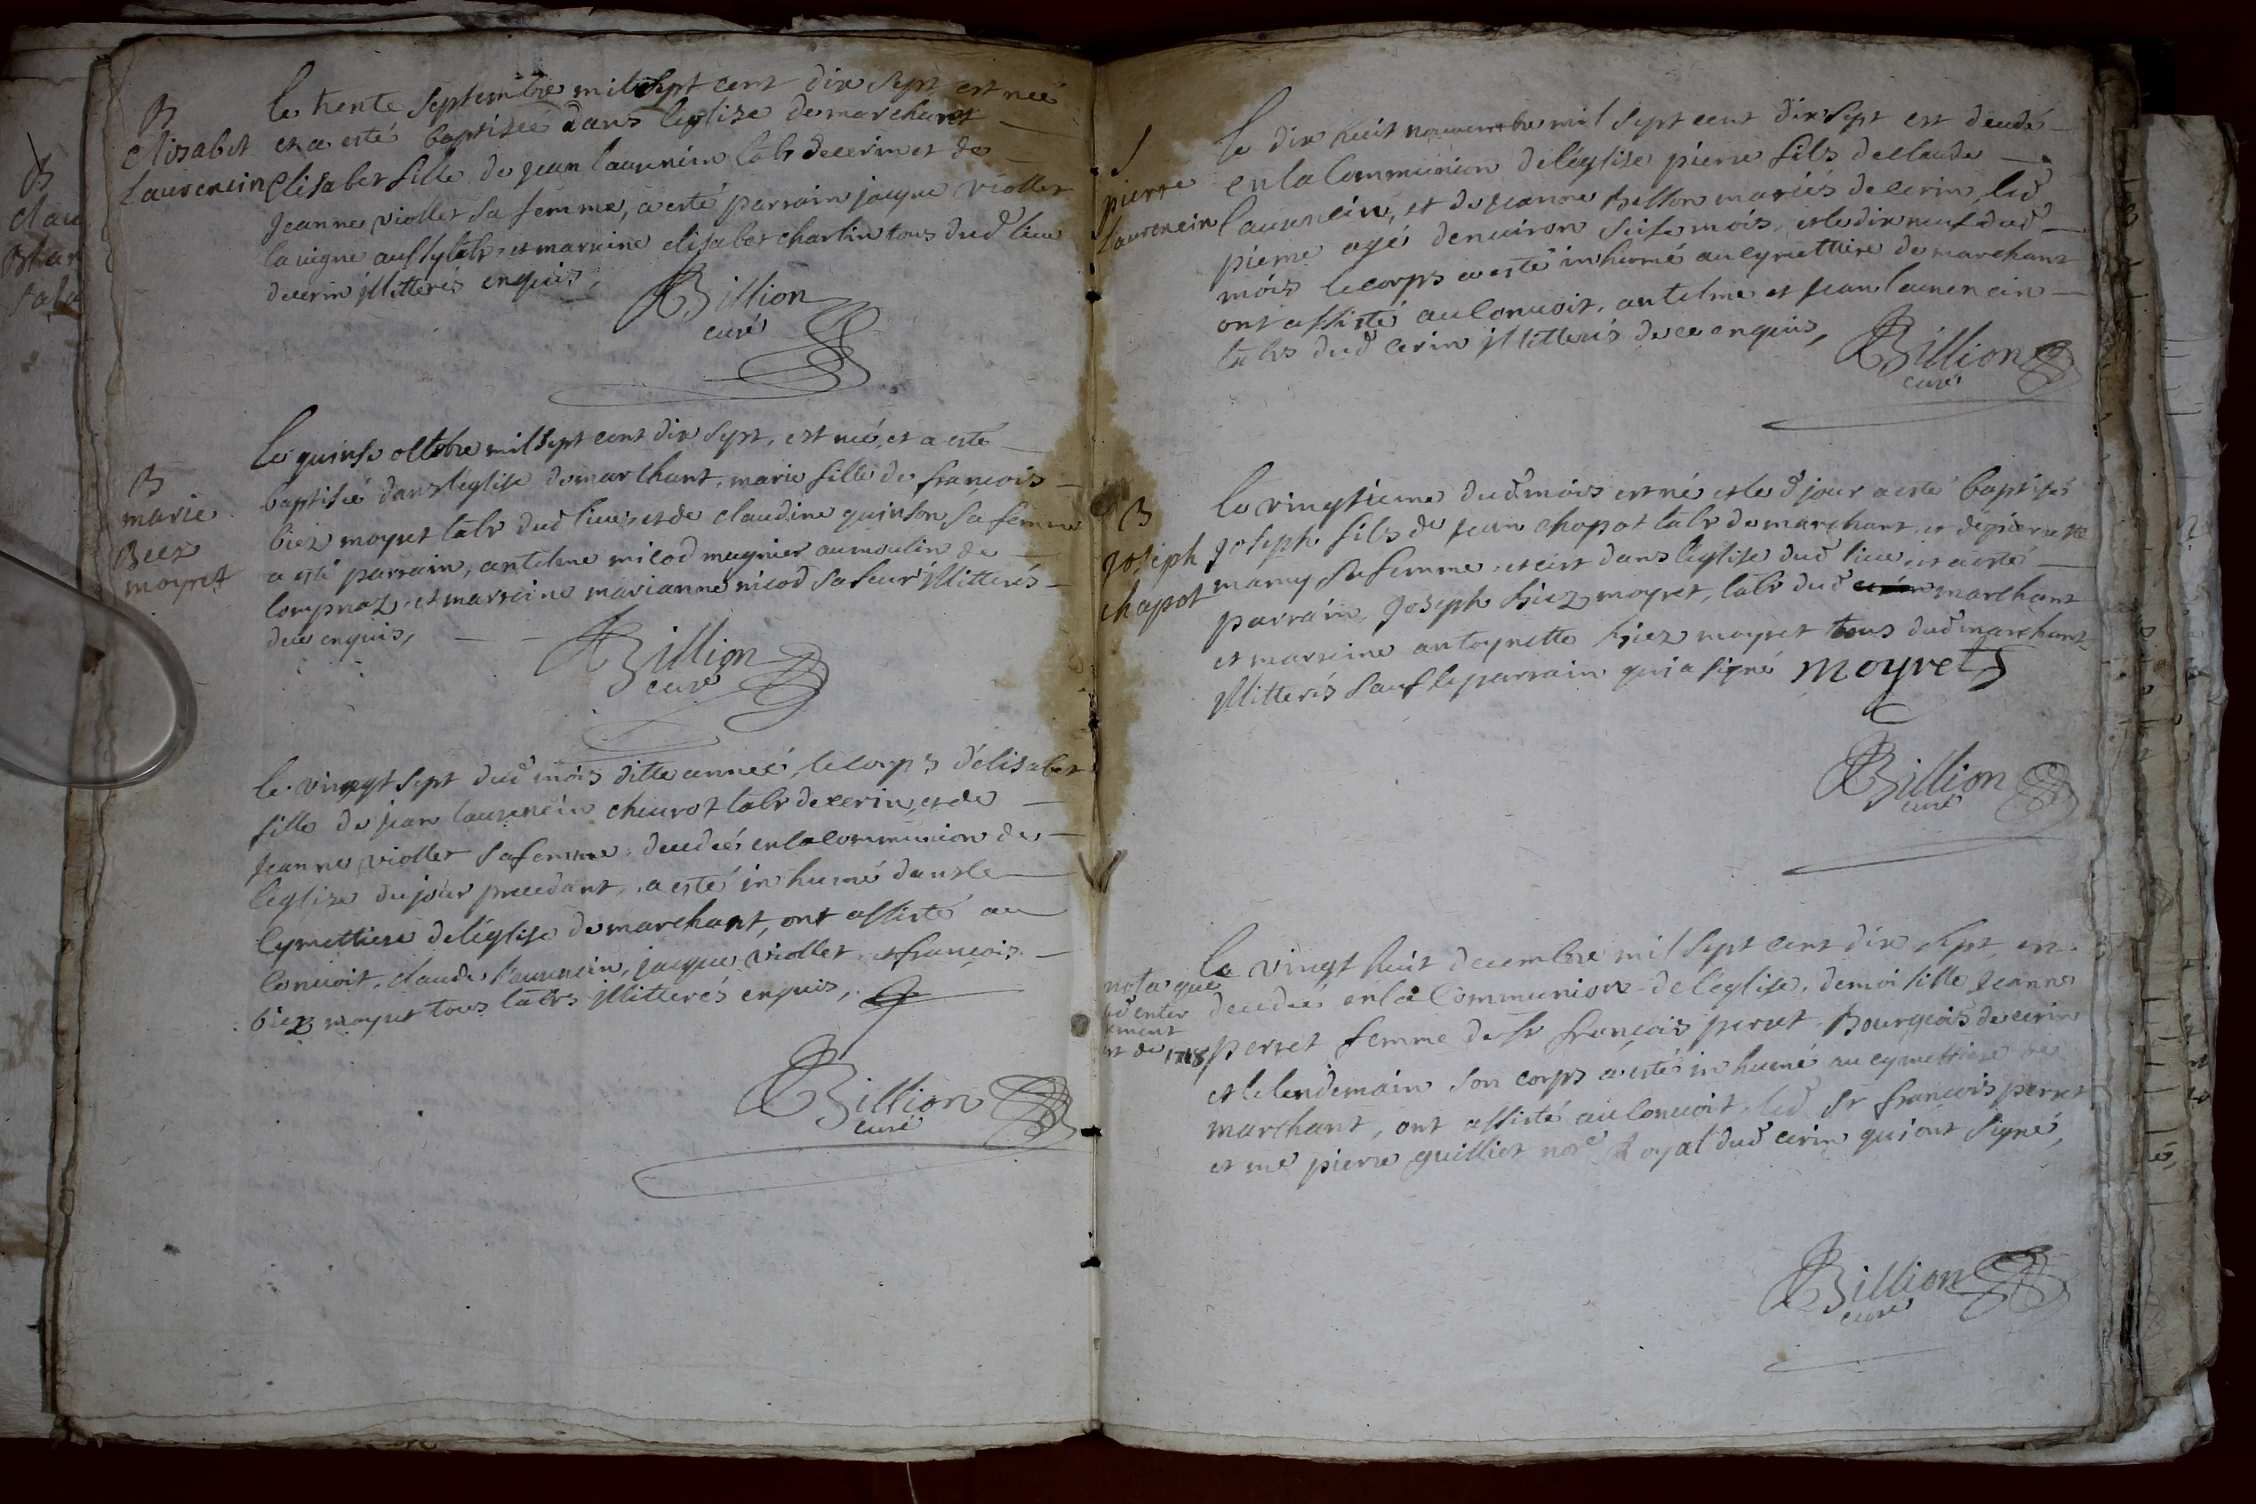 B
Elisabet
Laurencin
le trente septembre mil sept cent dix sept est neé
et a esté baptiseé dans leglize de marchant
Elisabet fille de jean laurencin labr de cerin et de
Jeanne viollet sa femme, a esté parrain jacque viollet
la vigne aussy labr, et marraine elisabet charlin tous dud lieu
de cerin illitterés enquis,
Billion
curé
B
marie
Biez
moyret
Le quinse octobre mil sept cent dix sept, est neé, et a esté
baptiseé dans leglise de marchant, marie fille de françois
biez moyret labr dud lieu, et de claudine quinson sa femme
a esté parrain, antelme nicod mugnier au moulin de
compnaz, et marraine marianne nicod sa seur illitterés
de ce enquis,
Billion
curé
le vingt sept dud mois ditte anneé, le corps d'elisabet
fille de jean laurencin chevrot labr de cerin, et de
Jeanne viollet sa femme, decedeé en la communion de
leglize du jour precedant, a esté inhumé dans le
Cymettiere de léglise de marchant, ont assisté au
Convoit, claude laurencin, jacque viollet, et françois
biez moyret tous labrs illitterés enquis,
Billion
curé
S
pierre
Laurencin
le dix huit novembre mil sept cent dix sept est decedé
en la Communion de léglise pierre fils de claude
laurencin, et de jeanne besson mariés de cerin, led
pierre agé denviron seise mois, et le dix neuf dud
mois le corps a esté inhumé au cymettiere de marchant
ont assisté au Convoit, antelme et jean laurencin
labrs dud cerin illitterés de ce enquis,
Billion
curé
B
Joseph
chapot
le vingtieme dud mois est né et led jour a esté baptisé
Joseph fils de jean chapot labr de marchant, et de pierrette
mamy sa femme, et ce dans leglise dud lieu, et a esté
parrain, Joseph biez moyret, labr dud marchant
et marraine antoynette biez moyret tous dud marchant
illitterés sauf le parrain qui a signé moyret
Billion
curé
nota que
led enter
ement
est de 1718
Le vingt huit decembre mil sept cent dix sept, est
decedeé en la Communion de léglise, demoiselle Jeanne
perret femme de sr françois perret Bourgeois de cerin
et le lendemain son corps a esté inhumé au cymettiere de
marchant, ont assisté au Convoit, led sr françois perret
et me pierre guilliet nore Royal dud cerin qui ont signé,
Billion
curé